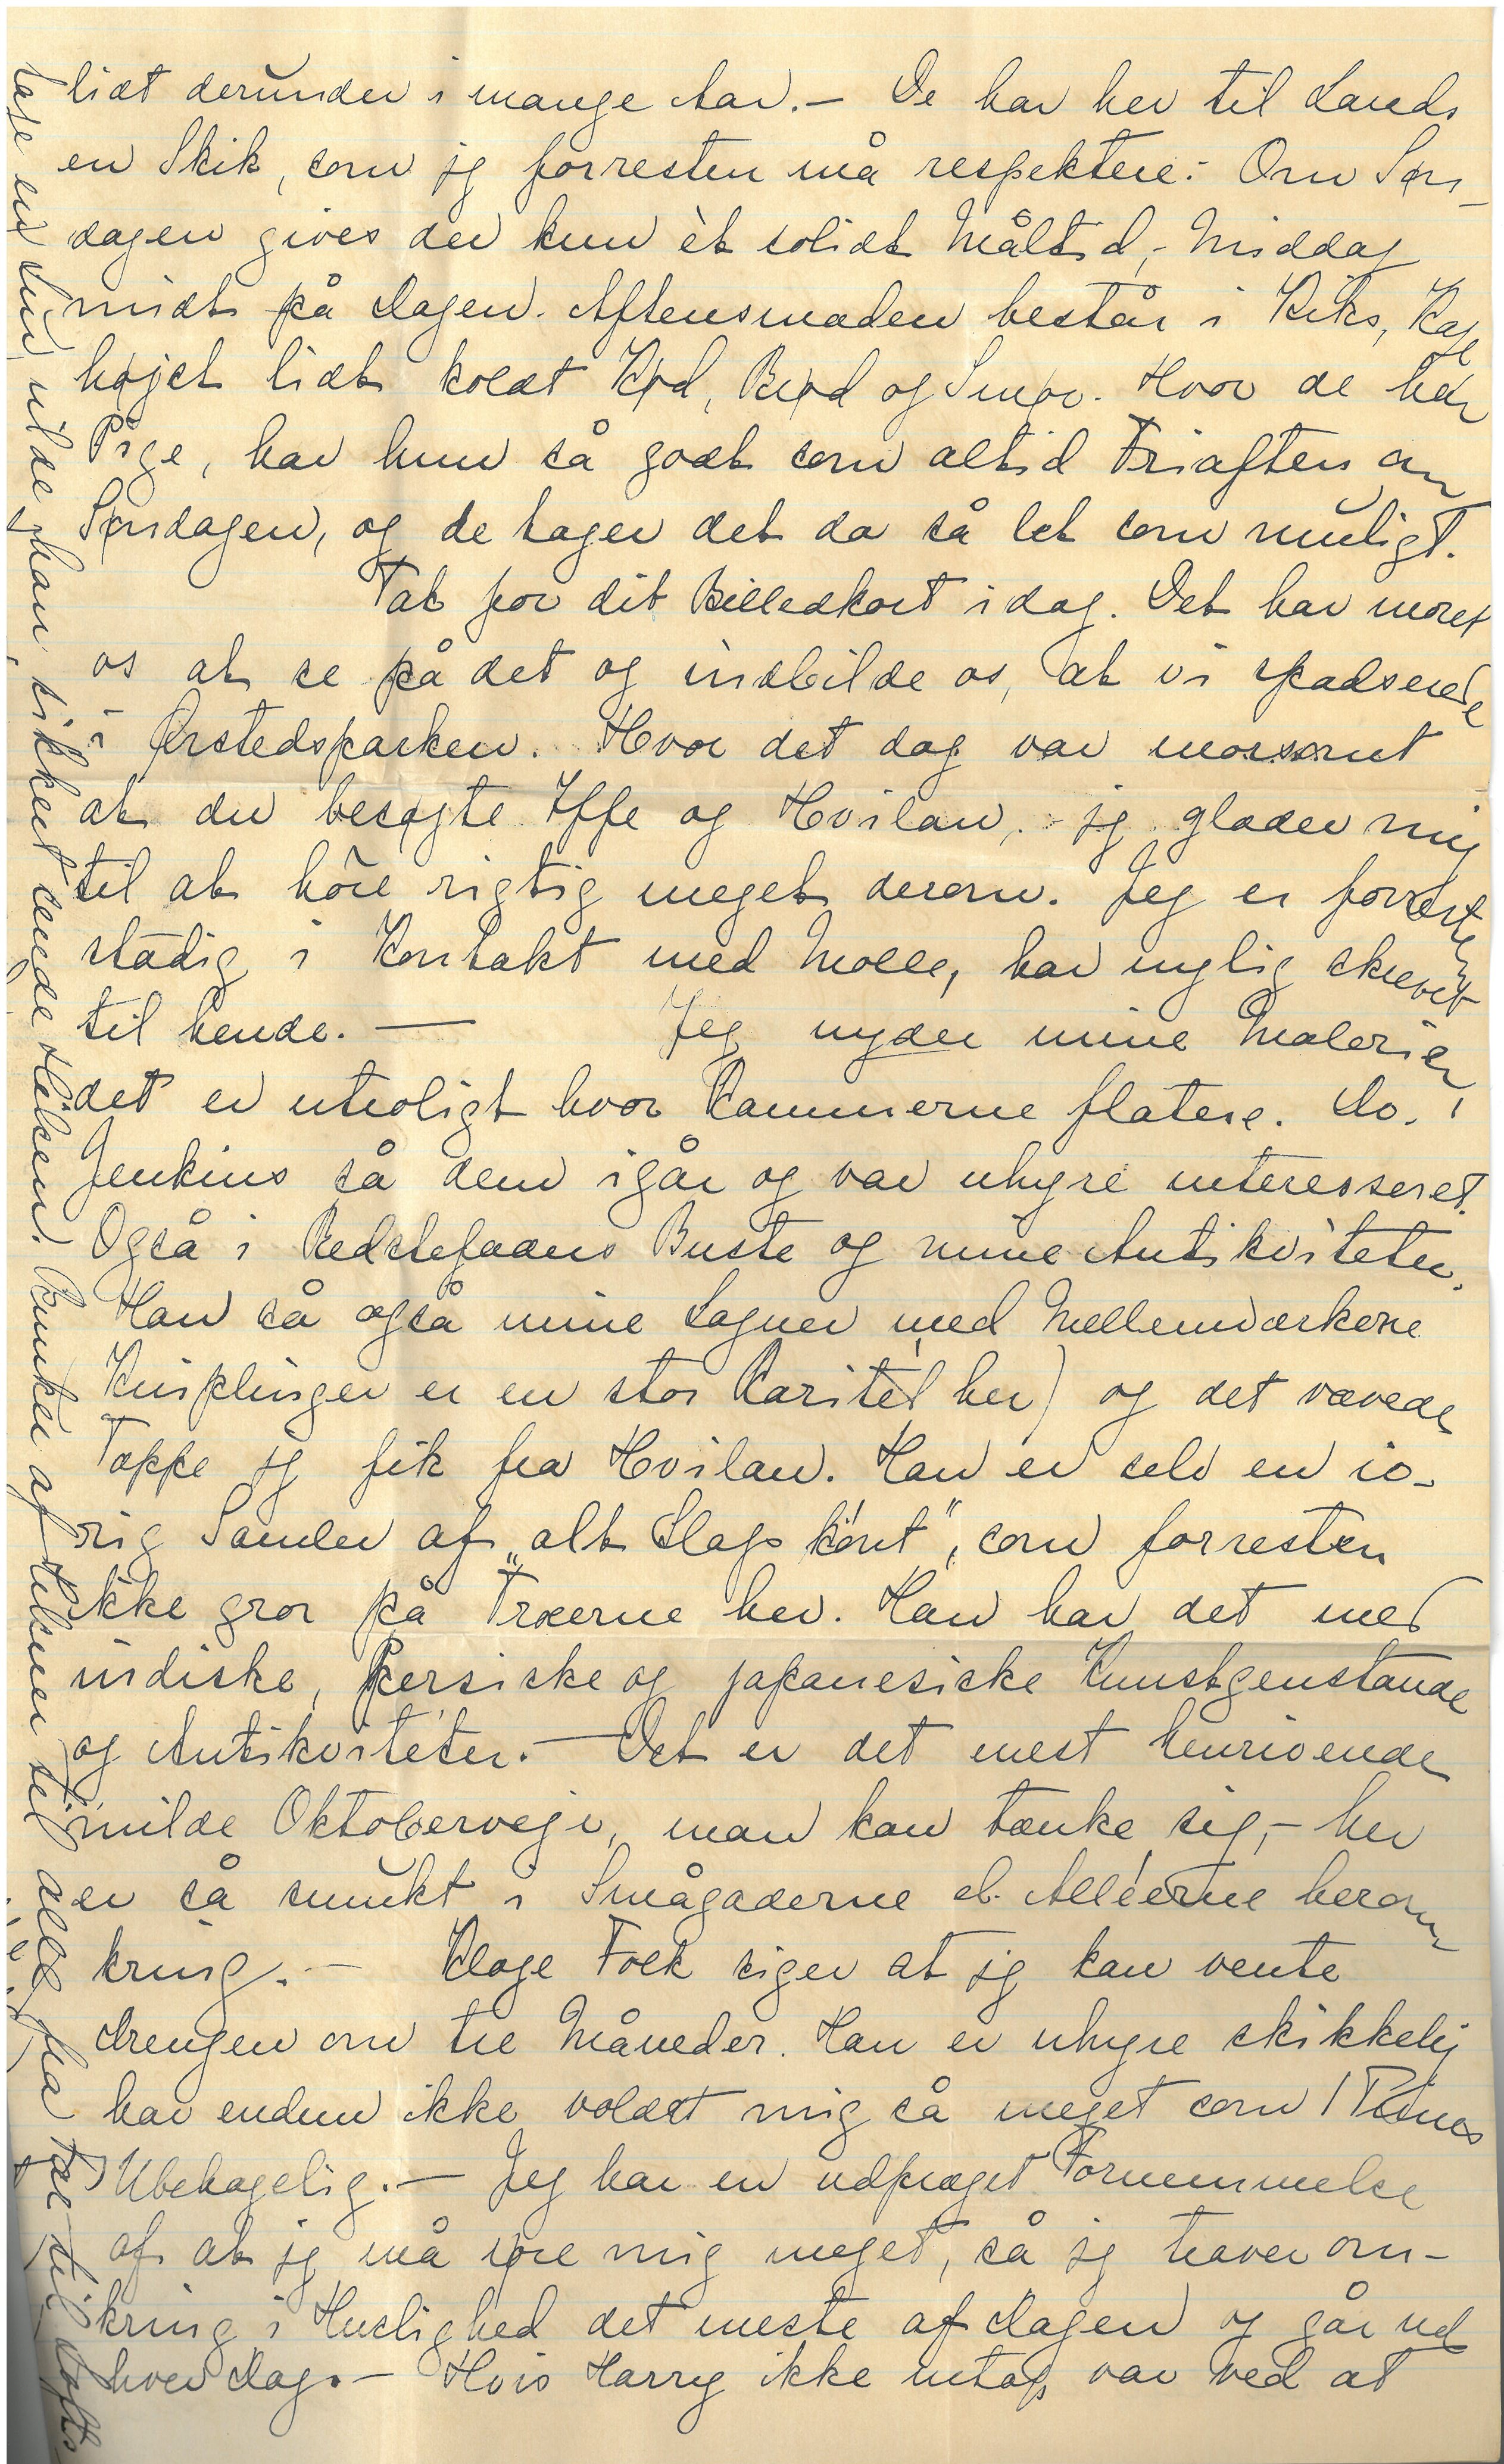 lidt derunder i mange Aar.- De har her til Lands
en Skik, som jeg forresten må respektere: Om Søn-
dagen gives der kun èt solidt Måltid,- Middag
midt på Dagen. Aftensmaden består i Kiks, Kage
højst lidt koldt Kød, Brød og Smør. Hvor de har
Pige, har hun så godt som altid Friaften om
Søndagen, og de tager det da så let som muligt.
Tak for dit Billedkort idag. Det har moret
os at se på det og indbilde os, at vi spadserede
i Ørstedsparken. Hvor det dog var morsomt
at du besøgte Yffe og Hvilan,- jeg glæder mig
til at höre rigtig meget derom. Jeg er forresten
stadig i Kontakt med Molle, har nylig skrevet
til hende. — Jeg nyder mine Malerier
det er utroligt hvor Rammerne flatere. Do.
Jenkins så dem igår og var uhyre interesseret.
Også i Bedstefaders Buste og mine Antikviteter.
Han så også mine Lagner med Mellemværkerne
Kniplinger er en stor Raritet her) og det vævede
Tæppe jeg fik fra Hvilan. Han er selv en iv-
rig Samler af „alt Slags könt", som forresten
ikke gror på Træerne her. Han har det med
indiske, persiske og japanesiske Kunstgenstande
og Antikviteter.- Det er det mest henrivende
milde Oktobervejr, man kan tænke sig,- her
er så smukt i Smågaderne el. Alléerne herom
kring.- Kloge Folk siger at jeg kan vente
Drengen om tre Måneder. Han er uhyre skikkelig
har endnu ikke voldt mig så meget som 1
Ubehagelig.- Jeg har en udpræget Fornemmelse
af at jeg må røre mig meget, så jeg traver om-
kring i Huslighed det meste af Dagen og går ud
hver Dag.- Hvis Harry ikke netop var ved at
tage en Lur, vilde han sikkert sende Hilsen. Bunker af Hilsner til alle fra